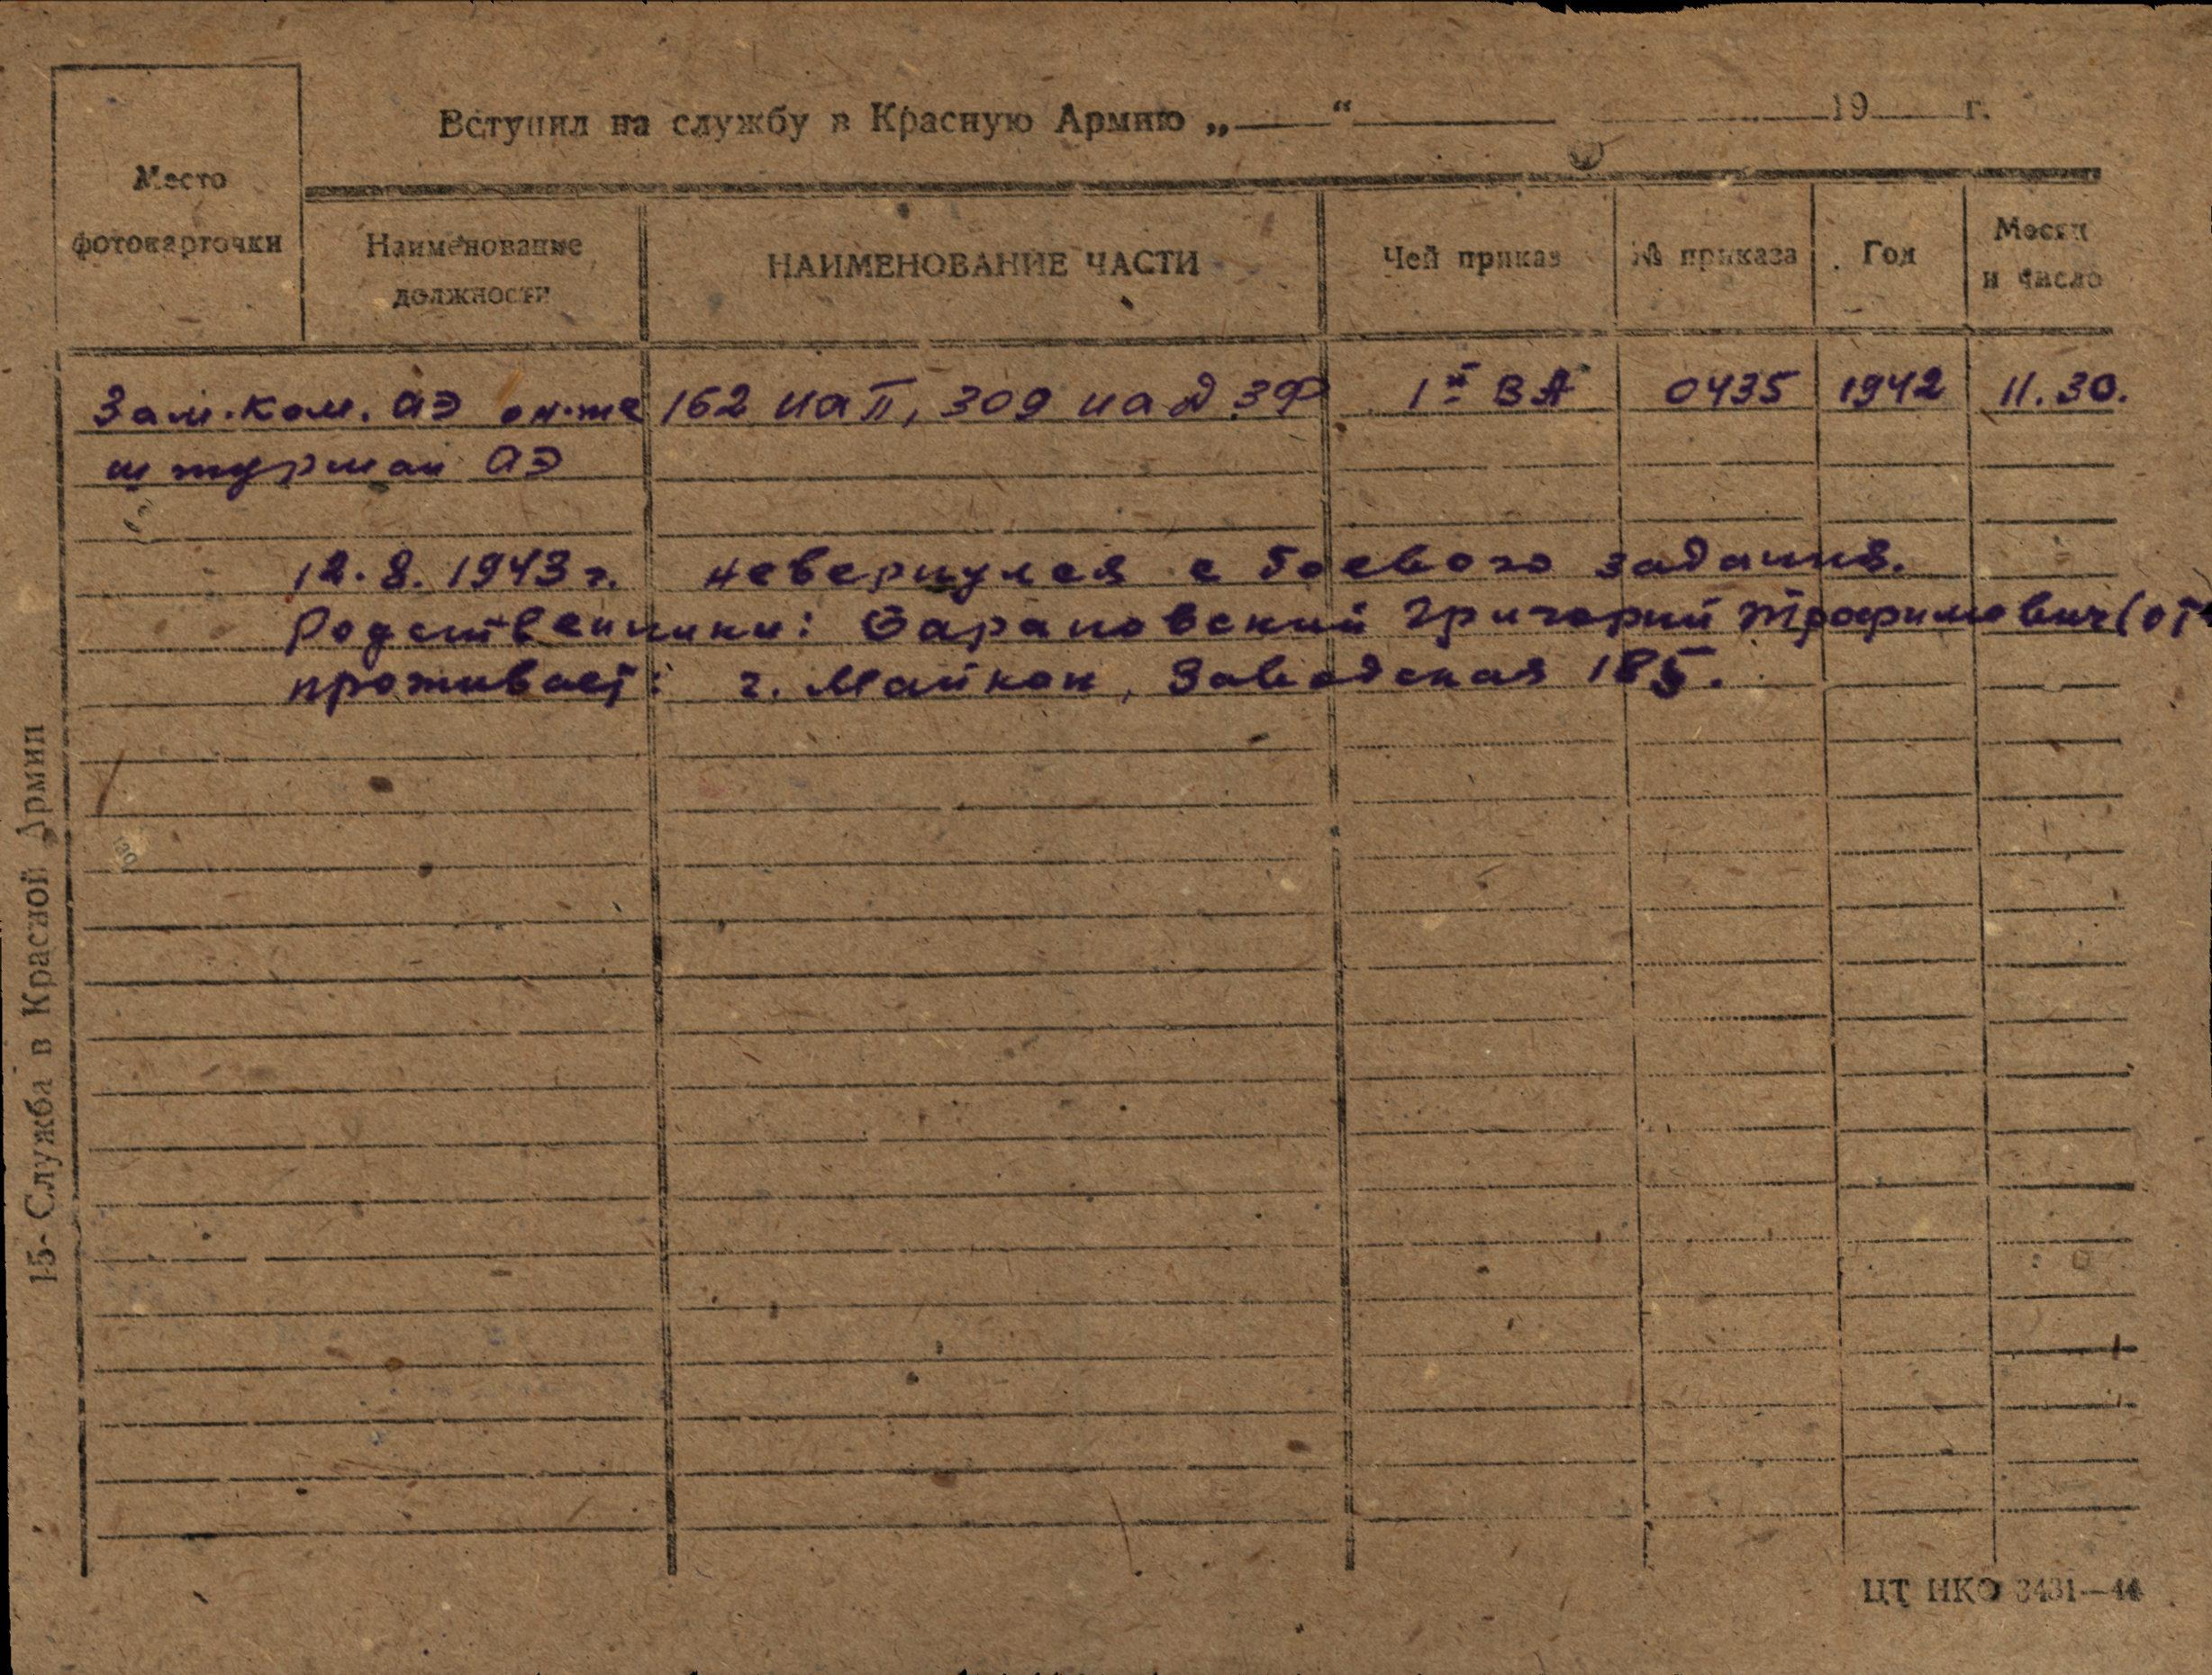 Вступил на службу в Красную Армию „ “ 19 г.
Место фотокарточки
Наименование должности
НАИМЕНОВАНИЕ ЧАСТИ
Чей приказ
№ приказа
Год
Месяц и число
Зам. ком. АЭ он-же 162 иаП, 309 иад ЗФ 1й ВА 0435 1942 11.30.
штурман АЭ
12.8.1943 г. невернулся с боевого задания.
Родственники: Барановский Григорий Трофимович (от
проживает: г. Майкоп, Заводская 185.
15- Служба в Красной Армии
ЦТ НКО 3431—44